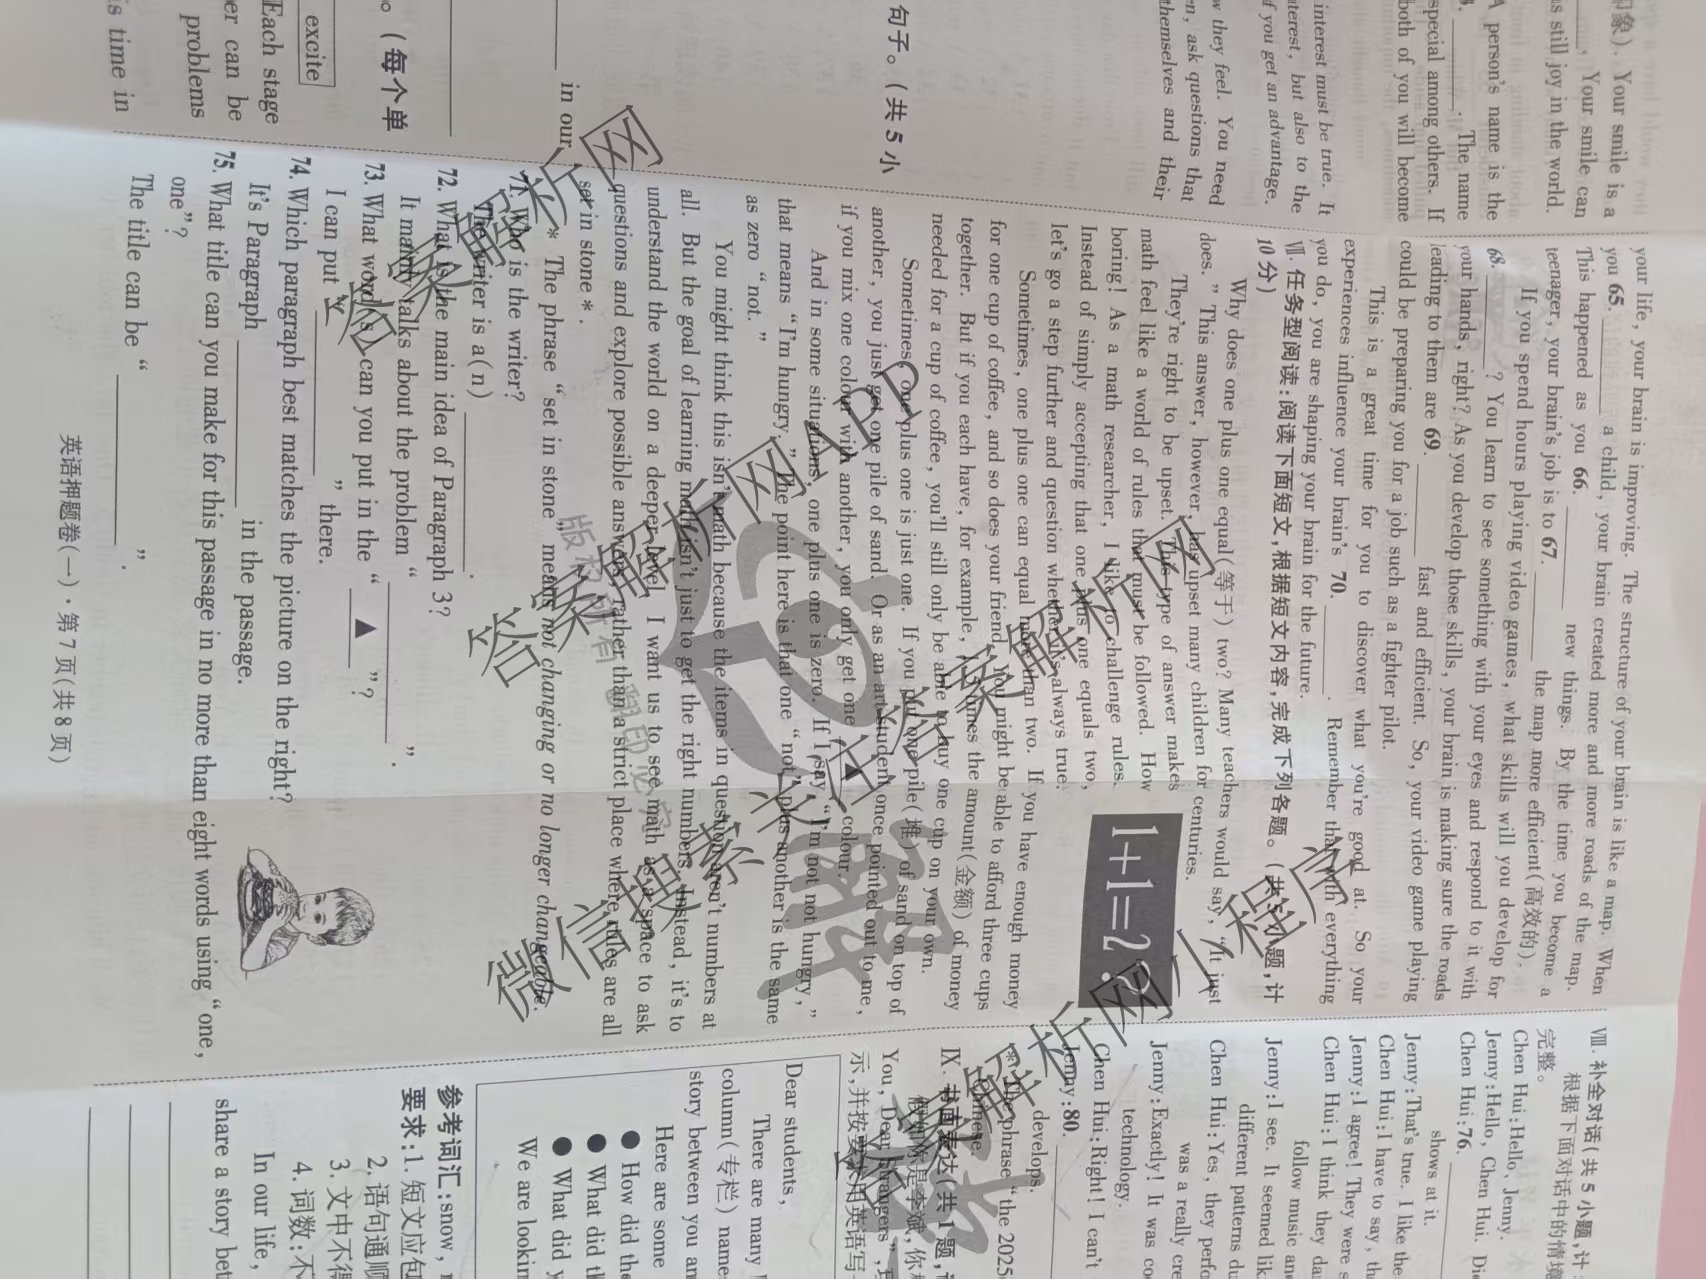 句子。（共 5 小
excite
Each stage
er can be
problems
s time in
。（每个单
in our
interest must be true. It
terest, but also to the
f you get an advantage.
w they feel. You need
n, ask questions that
themselves and their
印象). Your smile is a
. Your smile can
is still joy in the world.
A person's name is the
. The name
special among others. If
both of you will become
your life, your brain is improving. The structure of your brain is like a map. When
you 65. ______ a child, your brain created more and more roads of the map.
This happened as you 66. ______ new things. By the time you become a
teenager, your brain's job is to 67. ______ the map more efficient(高效的).
If you spend hours playing video games, what skills will you develop for
68. ______? You learn to see something with your eyes and respond to it with
your hands, right? As you develop those skills, your brain is making sure the roads
leading to them are 69. ______ fast and efficient. So, your video game playing
could be preparing you for a job such as a fighter pilot.
This is a great time for you to discover what you're good at. So your
experiences influence your brain's 70. ______. Remember that with everything
you do, you are shaping your brain for the future.
Ⅶ. 任务型阅读:阅读下面短文,根据短文内容,完成下列各题。(共 5 小题,计
10 分)
Why does one plus one equal(等于) two? Many teachers would say, "It just
does." This answer, however, has upset many children for centuries.
They're right to be upset. This type of answer makes
math feel like a world of rules that must be followed. How
boring! As a math researcher, I like to challenge rules.
Instead of simply accepting that one plus one equals two,
let's go a step further and question whether it's always true.
1+1=2?
Sometimes, one plus one can equal more than two. If you have enough money
for one cup of coffee, and so does your friend, you might be able to afford three cups
together. But if you each have, for example, 1.5 times the amount(金额) of money
needed for a cup of coffee, you'll still only be able to buy one cup on your own.
Sometimes, one plus one is just one. If you put one pile(堆) of sand on top of
another, you just get one pile of sand. Or as an art student once pointed out to me,
if you mix one colour with another, you only get one ▲ colour.
And in some situations, one plus one is zero. If I say, "I'm not not hungry,"
that means "I'm hungry." The point here is that one "not" plus another is the same
as zero "not."
You might think this isn't math because the items in question aren't numbers at
all. But the goal of learning math isn't just to get the right numbers. Instead, it's to
understand the world on a deeper level. I want us to see math as a space to ask
questions and explore possible answers rather than a strict place where rules are all
set in stone*.
* The phrase "set in stone" means not changing or no longer changeable.
71. Who is the writer?
The writer is a(n) ______.
72. What is the main idea of Paragraph 3?
It mainly talks about the problem "______".
73. What word(s) can you put in the "▲"?
I can put "______" there.
74. Which paragraph best matches the picture on the right?
It's Paragraph ______ in the passage.
75. What title can you make for this passage in no more than eight words using "one,
one"?
The title can be "______".
英语押题卷(一)·第 7 页(共 8 页)
Ⅷ. 补全对话(共 5 小题,计
根据下面对话中的情境
完整。
Chen Hui:Hello, Jenny.
Jenny:Hello, Chen Hui. Di
Chen Hui:76. ______
shows at it.
Jenny:That's true. I like the
Chen Hui:I have to say, th
Jenny:I agree! They were s
Chen Hui:I think they da
follow music an
Jenny:I see. It seemed lik
different patterns du
Chen Hui:Yes, they perfo
was a really cre
Jenny:Exactly! It was co
technology.
Chen Hui:Right! I can't
Jenny:80. ______
develops.
* The phrase "the 2025
Chinese.
Ⅸ. 书面表达(共 1 题,
假如你是李斌,你
You, Dear Strangers",
示,并按要求用英语写
Dear students,
There are many
column(专栏) name
story between you an
Here are some
● How did the
● What did t
● What did y
We are lookin
参考词汇:snow,
要求:1. 短文应包
2. 语句通顺
3. 文中不得
4. 词数:不
In our life,
share a story bet
版权所有 翻印必究
答案解析网
答案解析网APP
微信搜索 关注答案解析网
答案解析网小程序